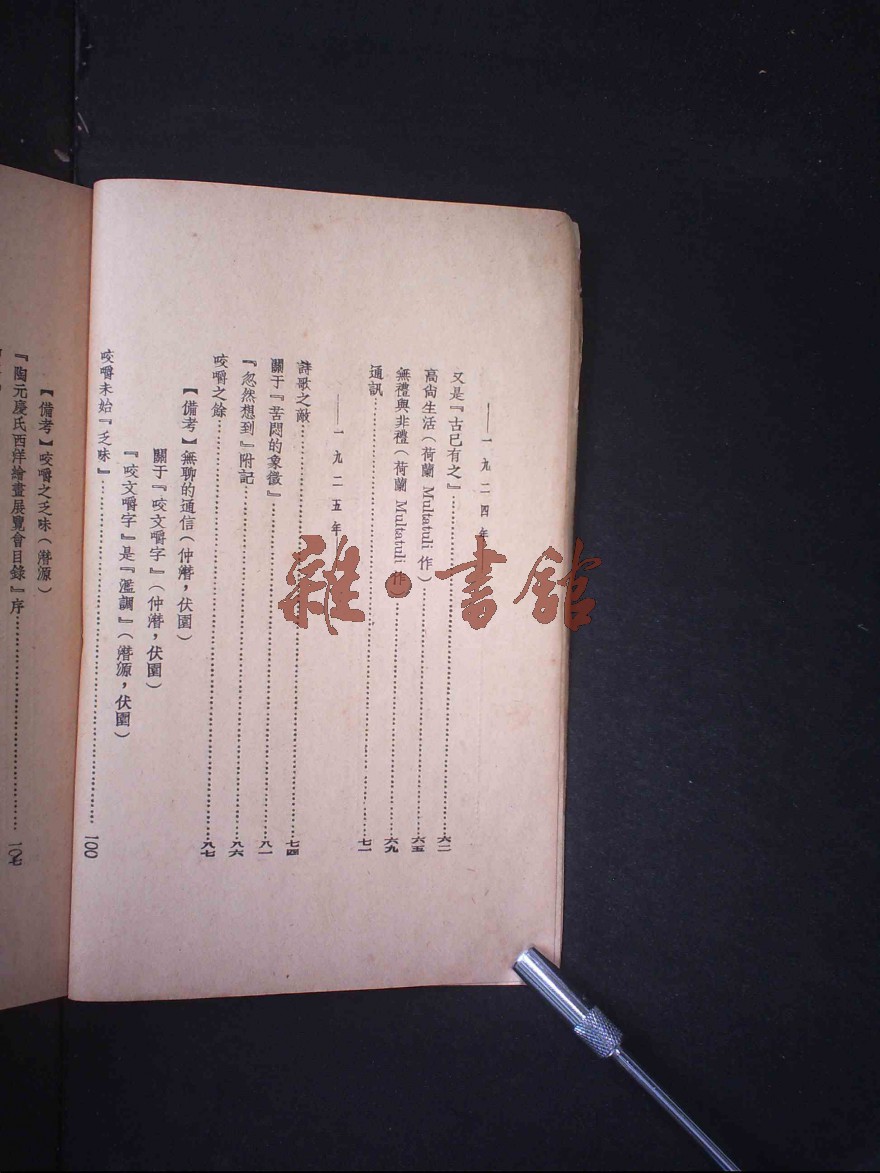 ——一九二四年
又是『古已有之』……六二
高尙生活（荷蘭 Multatuli 作）……六五
無禮與非禮（荷蘭 Multatuli 作）……六九
通訊……七一
——一九二五年
詩歌之敵……七四
關于『苦悶的象徵』……八一
『忽然想到』附記……八六
咬嚼之餘……八七
【備考】無聊的通信（仲潛，伏園）
關于『咬文嚼字』（仲潛，伏園）
『咬文嚼字』是『濫調』（潛源，伏園）
咬嚼未始『乏味』……一〇〇
【備考】咬嚼之乏味（潛源）
『陶元慶氏西洋繪畫展覽會目錄』序……
雜·書館